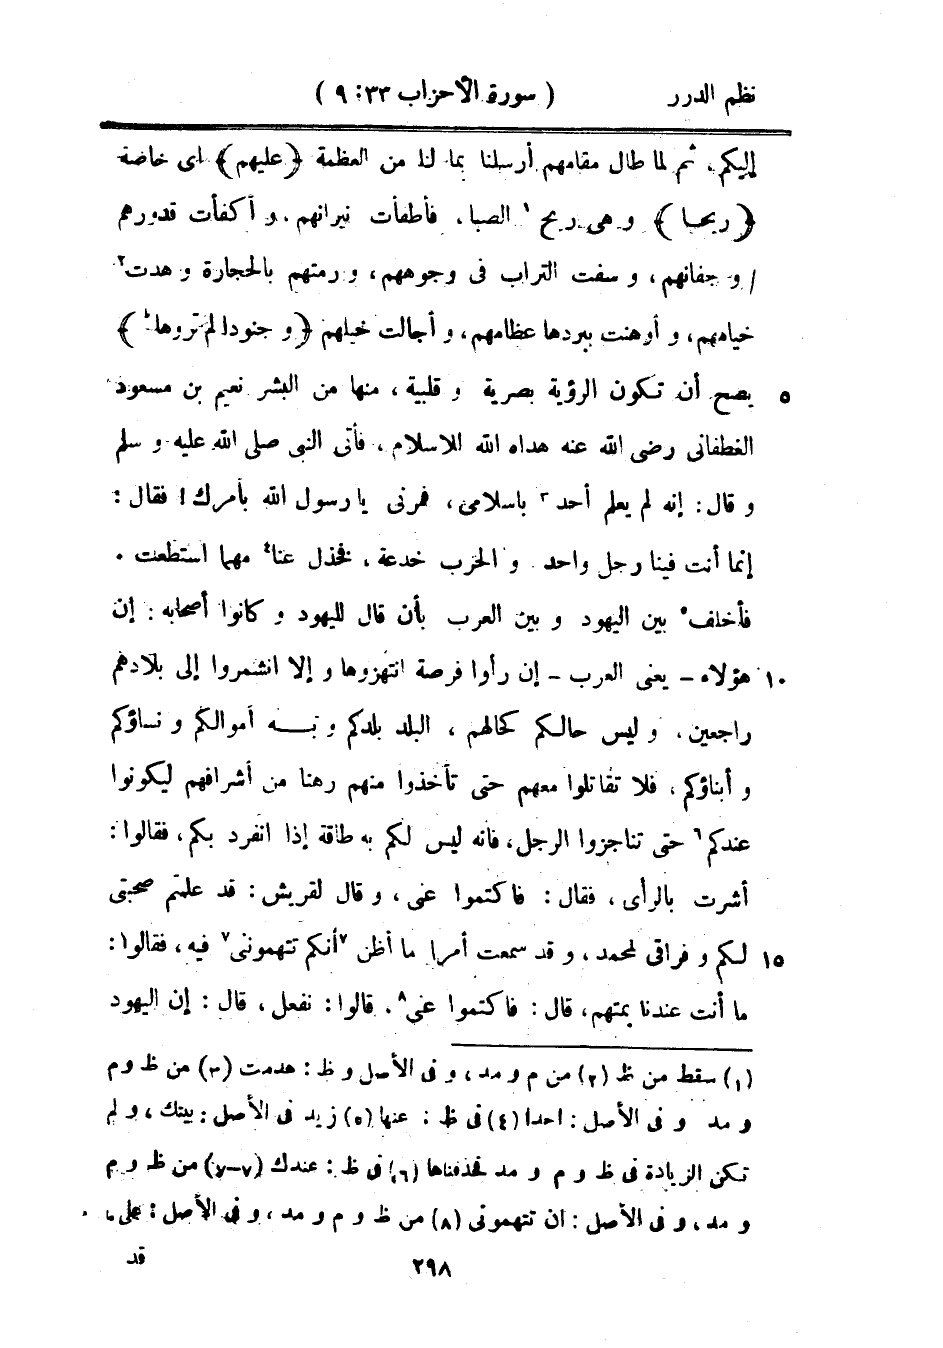 نظم الدرر ( سورة الأحزاب ٣٣ : ٩ )
إليكم، ثم لما طال مقامهم أرسلنا بما لنا من العظمة ﴿عليهم﴾ اى خاصة
﴿ريحا﴾ و هى ريح ١ الصبا، فأطفأت نيرانهم، و أكفأت قدورهم
/ و جفانهم، و سفت التراب فى وجوههم، و رمتهم بالحجارة و هدت٢
خيامهم، و أوهنت ببردها عظامهم، و أجالت خيلهم ﴿و جنودا لم تروها﴾
٥ يصح أن تكون الرؤية بصرية و قلبية، منها من البشر نعيم بن مسعود
الغطفانى رضى الله عنه هداه الله للاسلام، فأتى النبى صلى الله عليه و سلم
و قال: إنه لم يعلم أحد٣ باسلامى، فمرنى يا رسول الله بأمرك! فقال:
إنما أنت فينا رجل واحد و الحرب خدعة، فخذل عنا٤ مهما استطعت .
فأخلف٥ بين اليهود و بين العرب بأن قال لليهود و كانوا أصحابه: إن
١٠ هؤلاء - يعنى العرب - إن رأوا فرصة انتهزوها و إلا انشمروا إلى بلادهم
راجعين، و ليس حالكم كحالهم، البلد بلدكم و به أموالكم و نساؤكم
و أبناؤكم، فلا تقاتلوا معهم حتى تأخذوا منهم رهنا من أشرافهم ليكونوا
عندكم٦ حتى تناجزوا الرجل، فانه ليس لكم به طاقة إذا انفرد بكم، فقالوا:
أشرت بالرأى، فقال: فاكتموا عنى، و قال لقريش: قد علمتم صحبتى
١٥ لكم و فراقى لمحمد، و قد سمعت أمرا ما أظن ٧أنكم تتهموننى٧ فيه، فقالوا:
ما أنت عندنا بمتهم، قال: فاكتموا عنى٨، قالوا: نفعل، قال: إن اليهود
(١) سقط من ظ (٢) من م و مد، و فى الأصل و ظ: هدمت (٣) من ظ و م
و مد و فى الأصل: احدا (٤) فى ظ: عنها (٥) زيد فى الأصل: بيتك، و لم
تكن الزيادة فى ظ و م و مد فحذفناها (٦) فى ظ: عندك (٧-٧) من ظ و م
و مد، و فى الأصل: ان تتهمونى (٨) من ظ و م و مد، و فى الأصل: على ما .
قد
٢٩٨